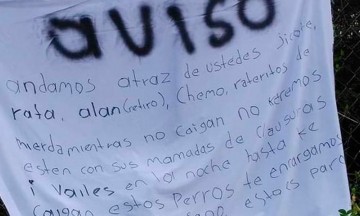 aviso
andamos atraz de ustedes jicote,
rata, alan (retiro), (chemo, rateritos de
mierda mientras no caigan no keremos
esten con sus mamadas de clausuras
i vailes en la noche hasta ke
caigan estos perros te encargamos
estoes para